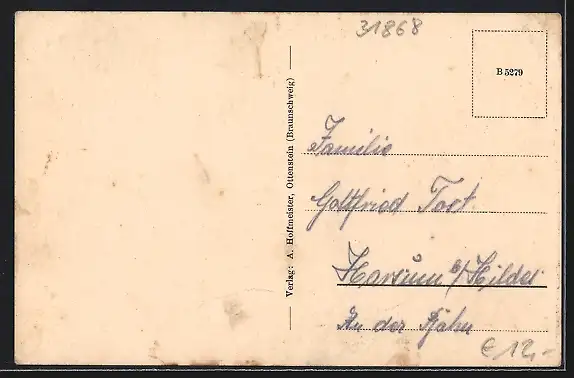 31868
B 5279
Verlag: A. Hoffmeister, Ottenstein (Braunschweig)
Familie
Gottfried Tost
Harsum b/Hildes
An der Bahn
€ 12,-